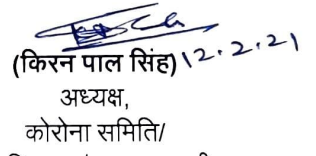 (किरन पाल सिंह) 12.2.21
अध्यक्ष,
कोरोना समिति/